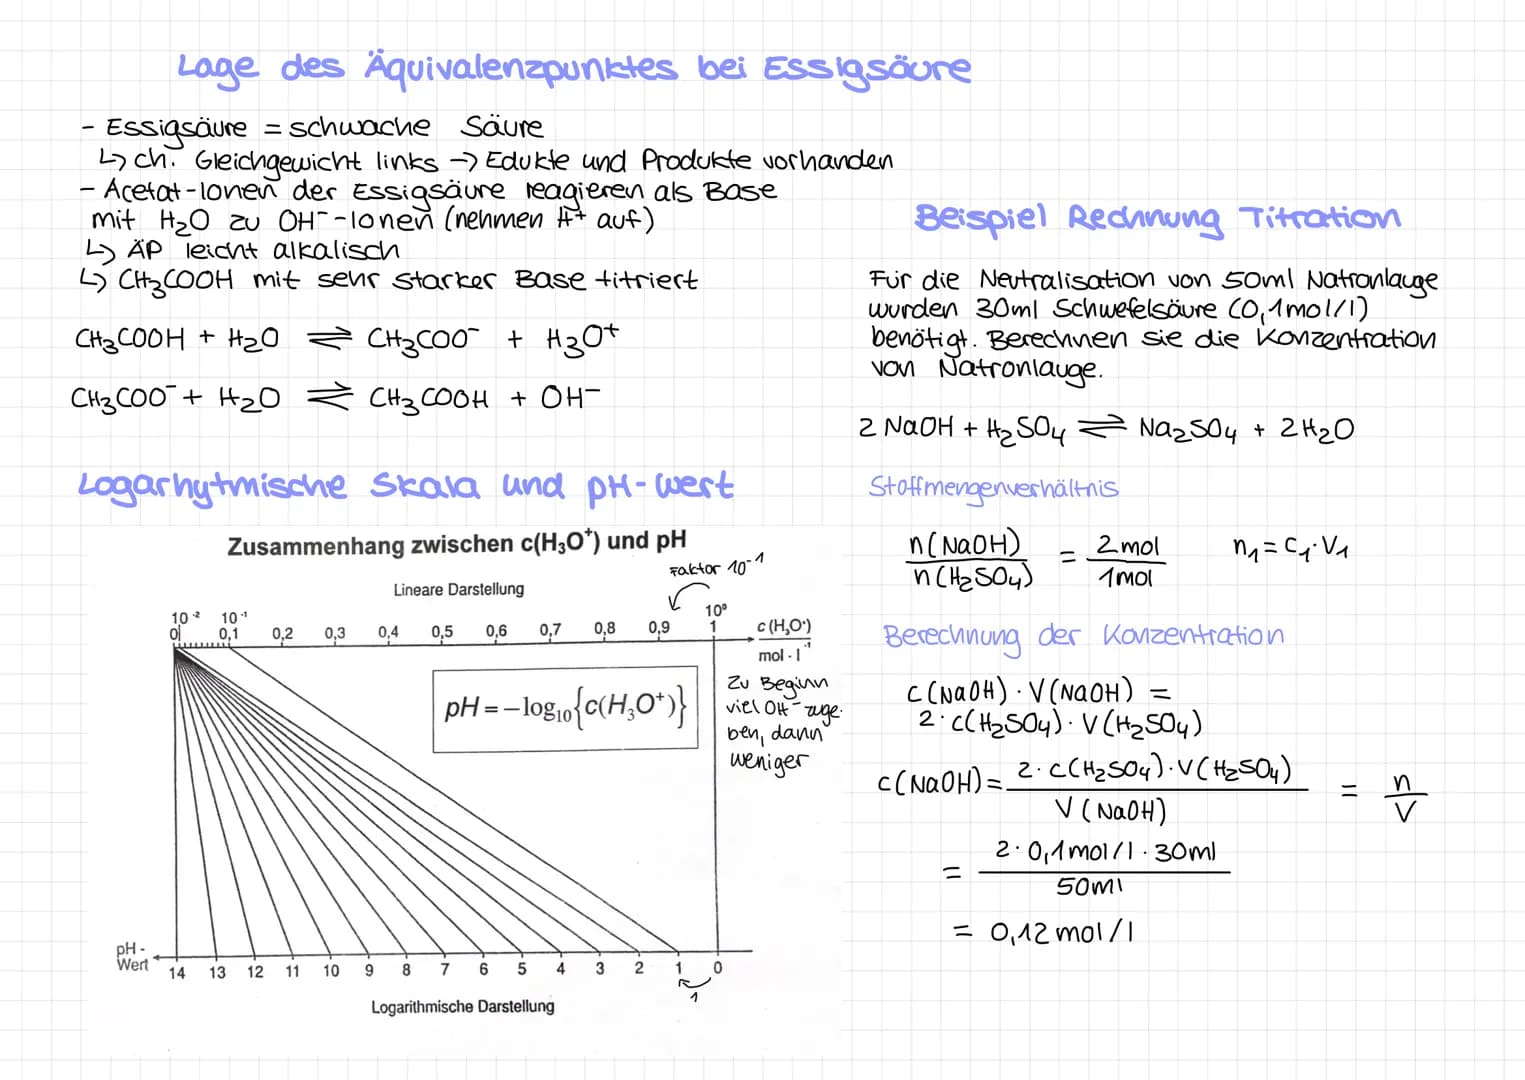 Lage des Äquivalenzpunktes bei Essigsäure
- Essigsäure = schwache Säure
↳ ch. Gleichgewicht links → Edukte und Produkte vorhanden
- Acetat-Ionen der Essigsäure reagieren als Base
mit H₂O zu OH⁻-Ionen (nehmen H⁺ auf)
↳ ÄP leicht alkalisch
↳ CH₃COOH mit sehr starker Base titriert
CH₃COOH + H₂O ⇌ CH₃COO⁻ + H₃O⁺
CH₃COO⁻ + H₂O ⇌ CH₃COOH + OH⁻
Logarhytmische Skala und pH-Wert
Zusammenhang zwischen c(H₃O⁺) und pH
Faktor 10⁻¹
Lineare Darstellung
10⁻² 10⁻¹ 10⁰
0 0,1 0,2 0,3 0,4 0,5 0,6 0,7 0,8 0,9 1 c(H₃O⁺)
mol · l⁻¹
pH = −log₁₀{c(H₃O⁺)}
Zu Beginn
viel OH⁻ zuge-
ben, dann
weniger
pH -
Wert
14 13 12 11 10 9 8 7 6 5 4 3 2 1 0
1
Logarithmische Darstellung
Beispiel Rechnung Titration
Für die Neutralisation von 50ml Natronlauge
wurden 30ml Schwefelsäure (0,1mol/l)
benötigt. Berechnen sie die Konzentration
von Natronlauge.
2 NaOH + H₂SO₄ ⇌ Na₂SO₄ + 2H₂O
Stoffmengenverhältnis
n(NaOH) = 2mol n₁ = c₁·V₁
n(H₂SO₄) 1mol
Berechnung der Konzentration
c(NaOH) · V(NaOH) =
2·c(H₂SO₄)·V(H₂SO₄)
c(NaOH) = 2·c(H₂SO₄)·V(H₂SO₄) = n
V(NaOH) V
= 2·0,1mol/l·30ml
50ml
= 0,12mol/l